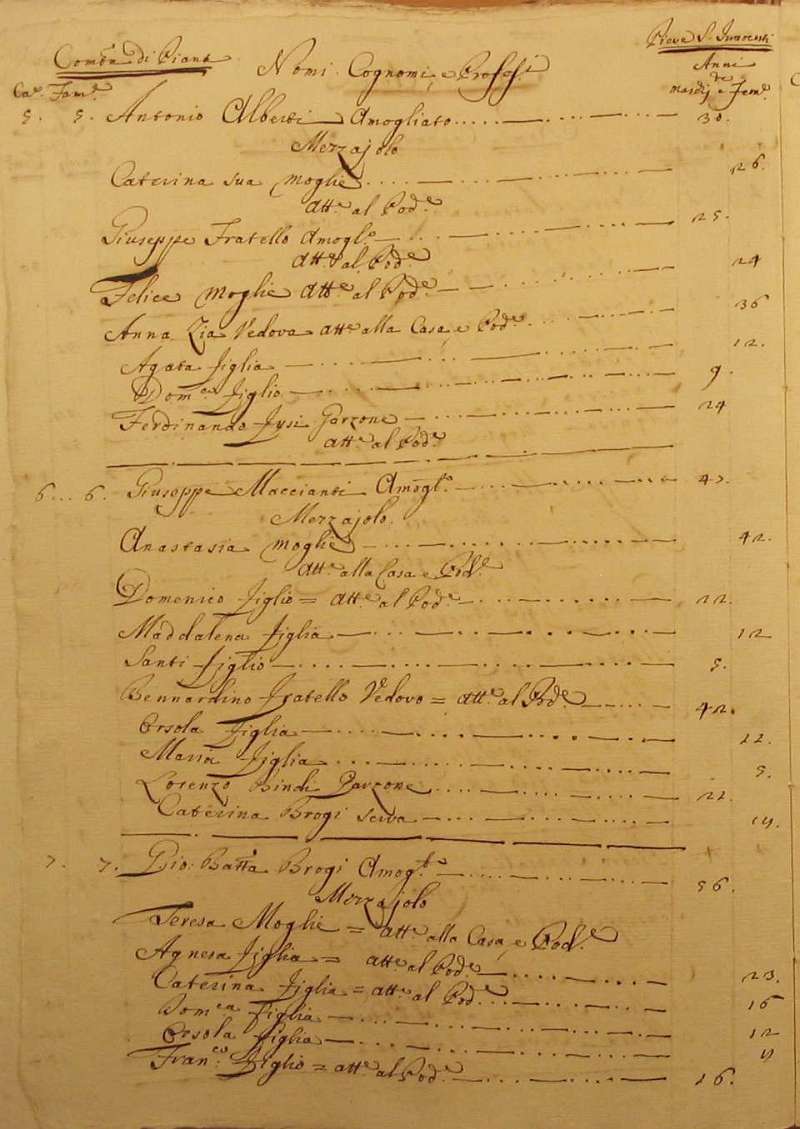 Comun.tà di Piana
Pieve S. Innocenti
Nomi, Cognomi, e Profess.i
Anni
Case Fam.e
Masch.j e Fem.e
5. 5. Antonio Alberti Amogliato 30.
Mezzajolo
Caterina sua Moglie 26.
Att.e al Pod.e
Giuseppe Fratello Amogl.o 25.
Att.e al Pod.e
Felice Moglie Att.e al Pod.e 24
Anna Zia Vedova att.e alla Casa, e Pod.e 36
Agata figlia 12.
Dom.co figlio 9.
Ferdinando Garzone 24
att.e al Pod.e
6. 6. Giuseppe Maccianti Amogl.o 47.
Mezzajolo
Anastasia Moglie 42.
Att.e alla Casa e Pod.e
Domenico figlio = att.e al Pod.e 22.
Maddalena figlia 12
Santi figlio 5.
Bennardino Fratello Vedovo = att.e al Pod.e 42.
Orsola figlia 12.
Maria figlia 5.
Lorenzo Bindi Garzone 22.
Caterina Brogi serva 14.
7. 7. Gio: Batta Brogi Amogl.o 56.
Mezzajolo
Teresa Moglie = att.e alla Casa, e Pod.e
Agnesa figlia = att.e al Pod.e 23.
Caterina figlia = att.e al Pod.e 16
Dom.ca figlia 12
Orsola figlia 4
Fran.co figlio = att.e al Pod.e 16.